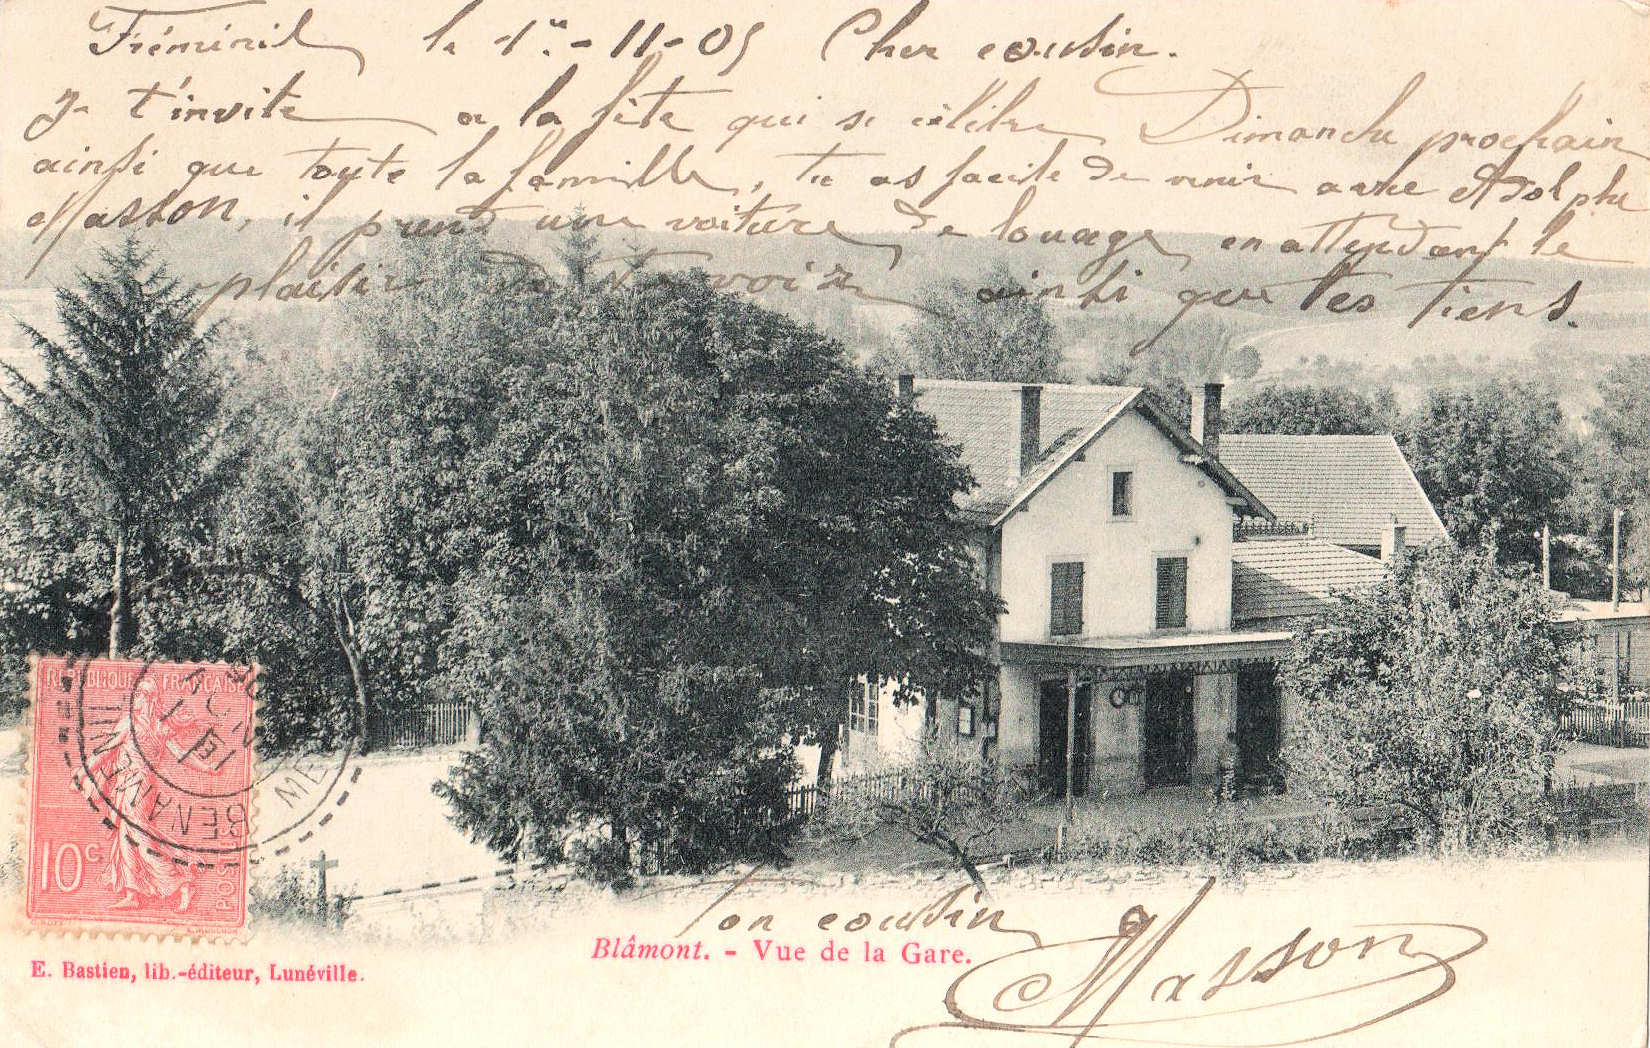 Fréminil le 1er-11-05 Cher cousin.
Je t'invite a la fête qui se célèbre Dimanche prochain
ainsi que toute la famille, tu as facile de venir avec Adolphe
Masson, il prend une voiture de louage en attendant le
plaisir de te voir ainsi que les tiens.
RÉPUBLIQUE FRANÇAISE
10c
POSTES
BENAMENIL
Ton cousin
Blâmont. - Vue de la Gare.
A Masson
E. Bastien, lib.-éditeur, Lunéville.